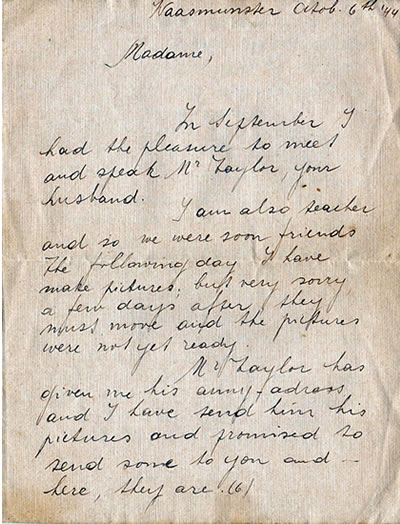 Waasmunster Octob. 6th '44
Madame,
In September I
had the pleasure to meet
and speak Mr Taylor, your
husband.
I am also teacher
and so we were soon friends
The following day I have
make pictures; but very sorry,
a few days after, they
must move and the pictures
were not yet ready.
Mr Taylor has
given me his army-adress
and I have send him his
pictures and promised to
send some to you and —
here, they are. (6)